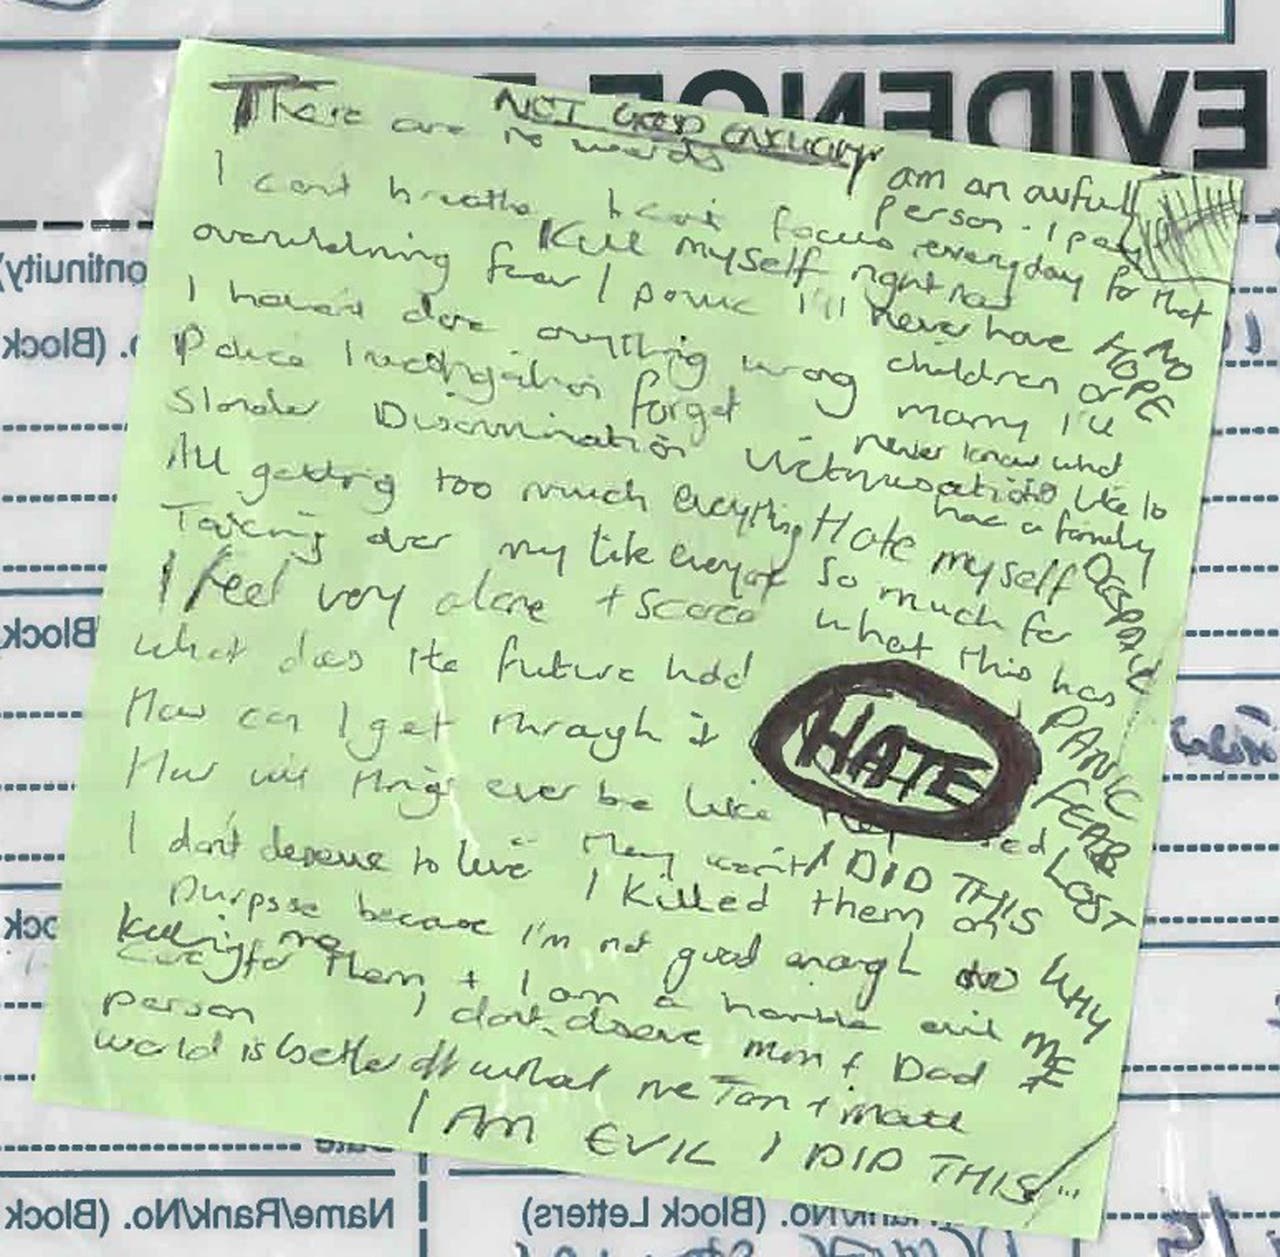 EVIDENCE
There are no words
NOT GOOD ENOUGH
I am an awful person. I pay every day for that
I can't breathe I can't focus
Kill myself right now
overwhelming fear / panic I'll never have children or marry I'll never know what it's like to have a family
NO HOPE
I haven't done anything wrong
Police Investigation forget
Slander Discrimination Victimisation
All getting too much everything
Hate myself so much for what this has
Taking over my life everyone
DESPAIR
I feel very alone + scared
What does the future hold
PANIC
How can I get through it
HATE
FEAR
How will things ever be like
LOST
I don't deserve to live
I DID THIS
I killed them on purpose because I'm not good enough to care for them + I am a horrible evil person
Killing me
WHY ME
I don't deserve Mum + Dad
world is better off without me Tom + Matt
I AM EVIL I DID THIS
Name/Rank/No. (Block Letters)